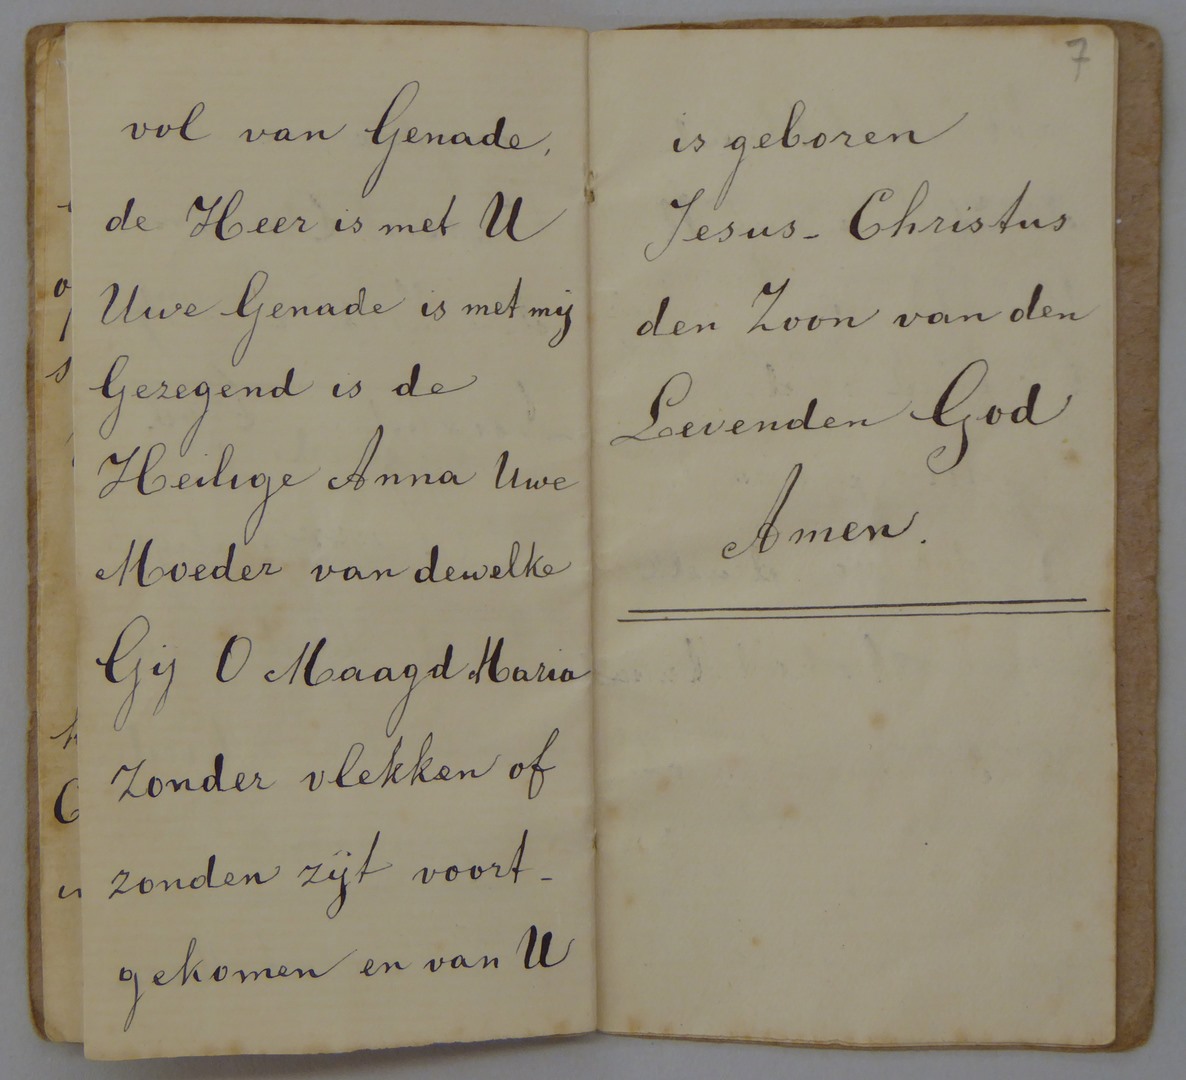 vol van Genade,
de Heer is met U
Uwe Genade is met mij
Gezegend is de
Heilige Anna Uwe
Moeder van dewelke
Gij O Maagd Maria
Zonder vlekken of
zonden zijt voort-
gekomen en van U
7
is geboren
Jesus-Christus
den Zoon van den
Levenden God
Amen.